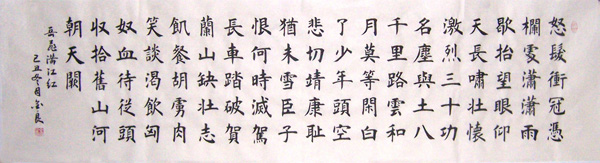 怒髮衝冠憑
欄處瀟瀟雨
歇抬望眼仰
天長嘯壯懷
激烈三十功
名塵與土八
千里路雲和
月莫等閑白
了少年頭空
悲切靖康恥
猶未雪臣子
恨何時滅駕
長車踏破賀
蘭山缺壯志
飢餐胡虜肉
笑談渴飲匈
奴血待從頭
收拾舊山河
朝天闕
岳飛滿江紅
己丑冬月